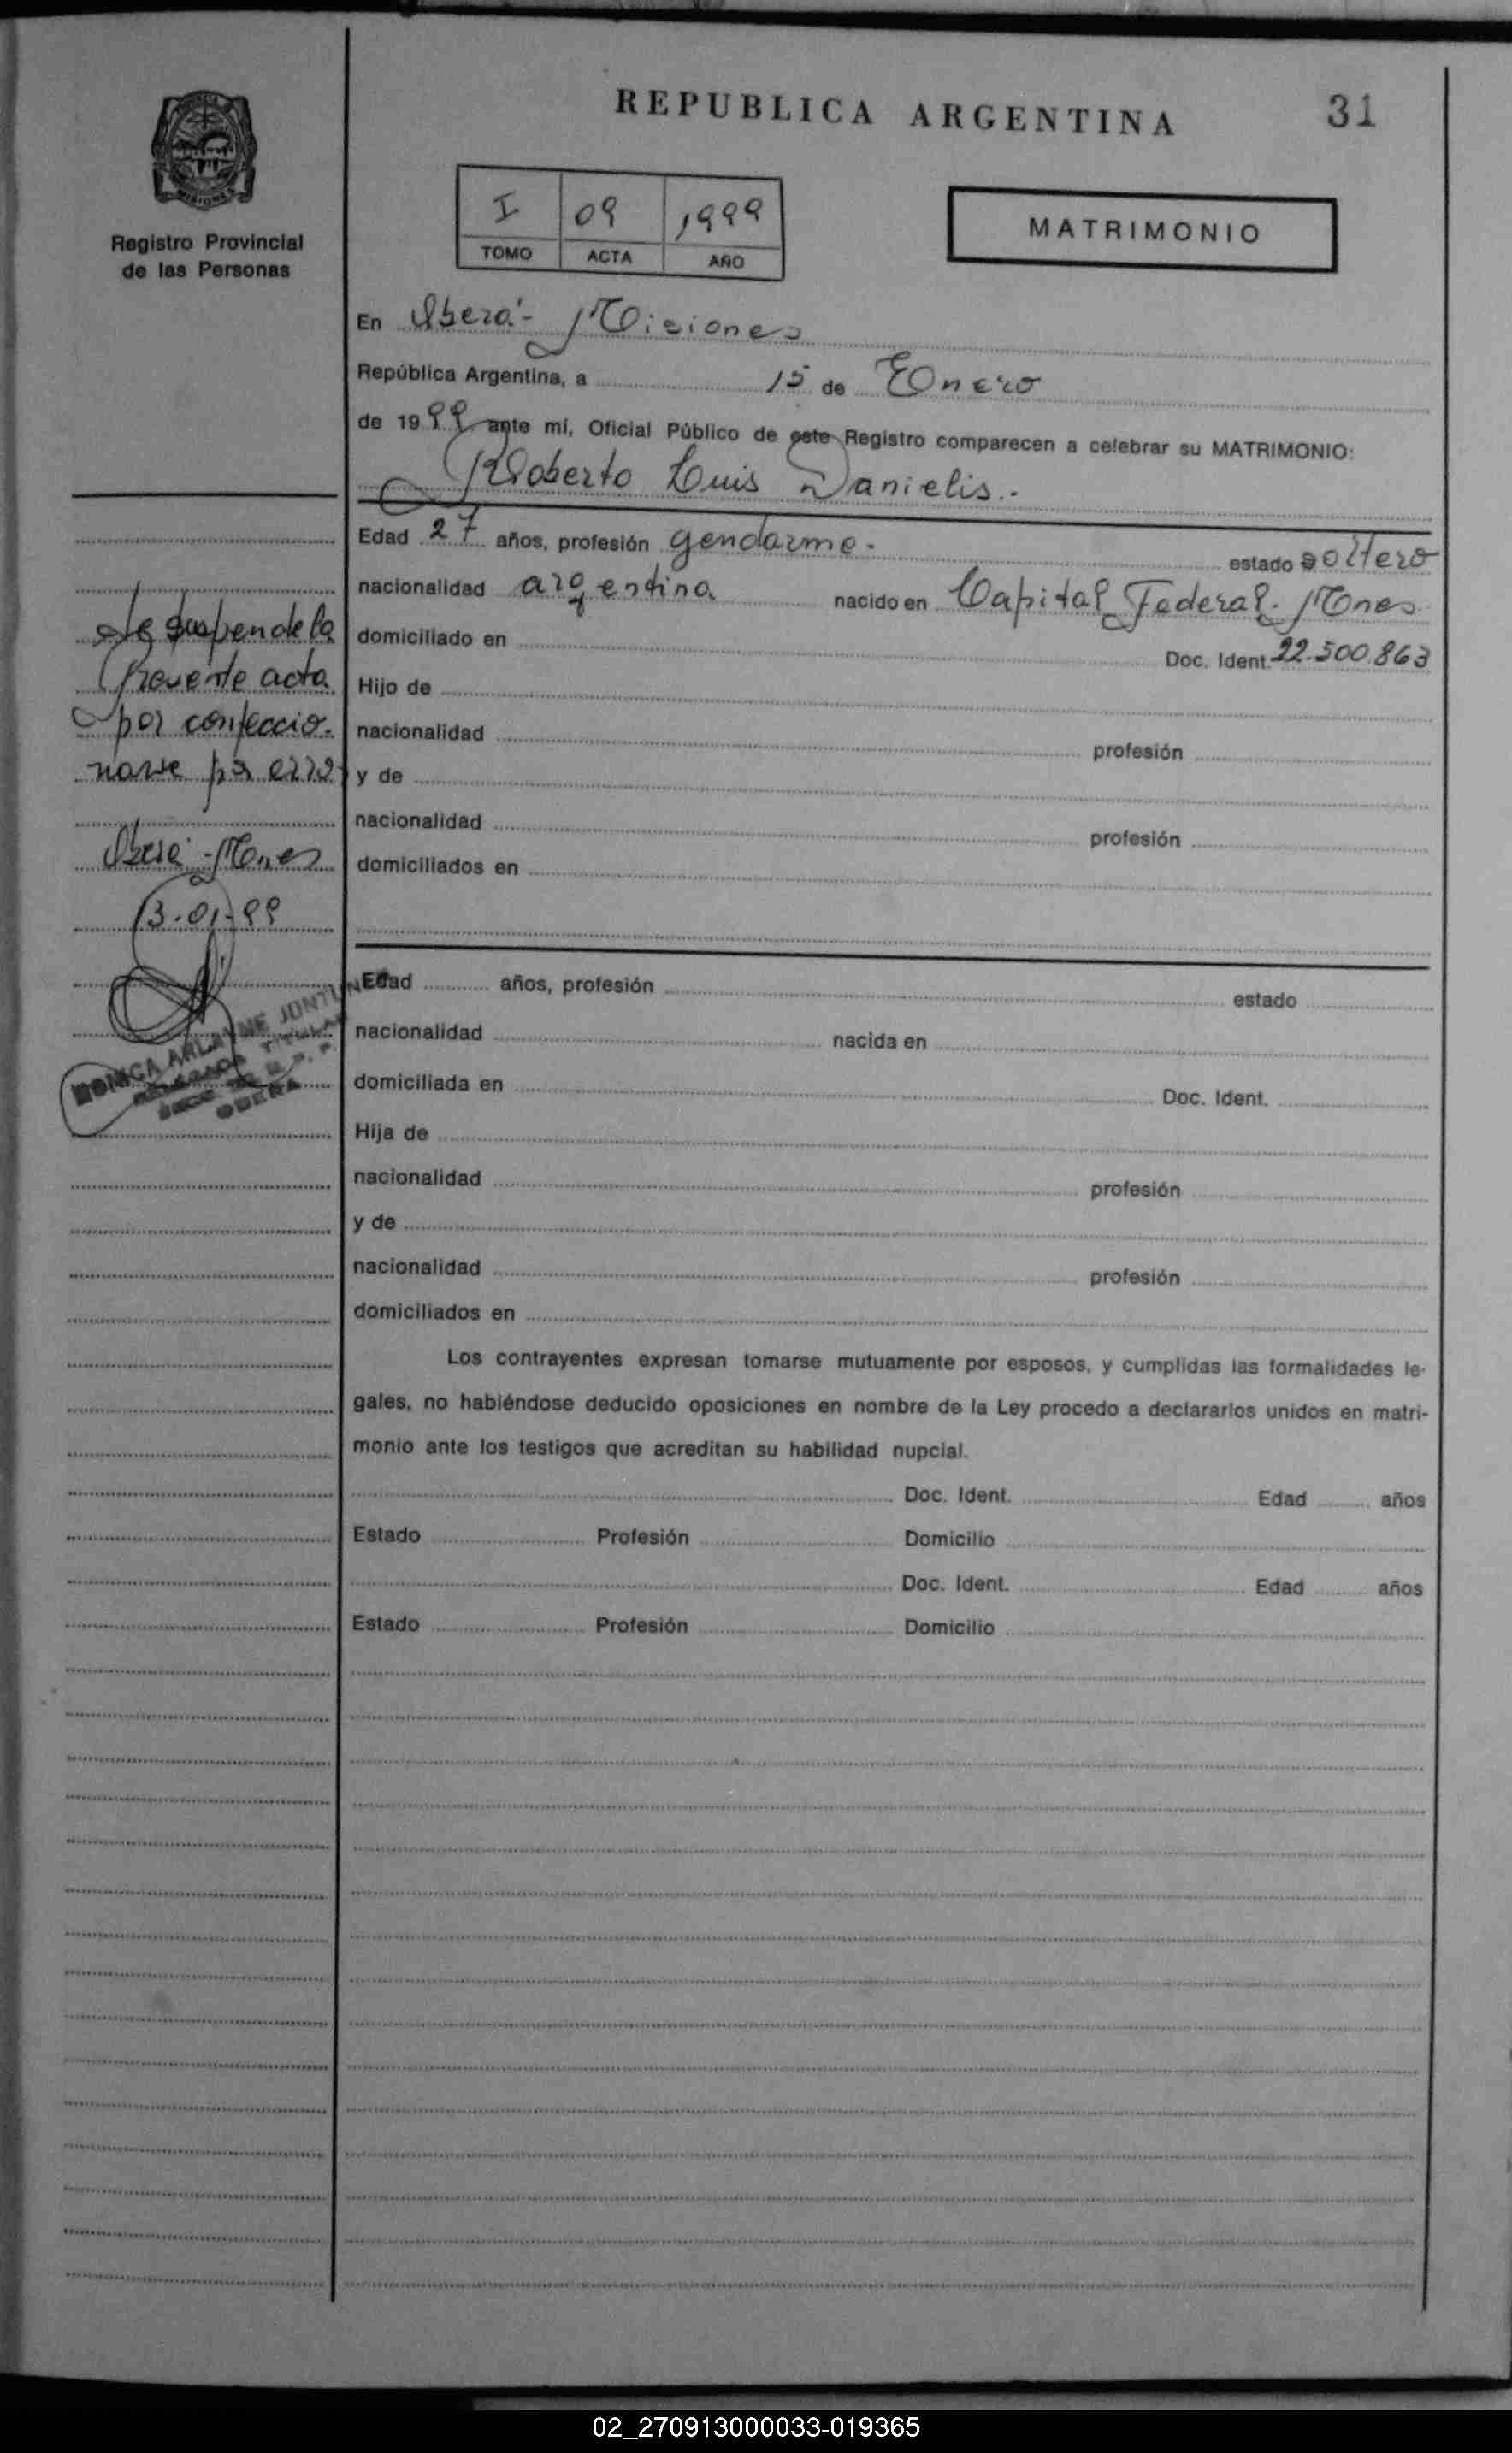 REPUBLICA ARGENTINA
31
Registro Provincial
de las Personas
I 09 1999
TOMO ACTA AÑO
MATRIMONIO
En Oberá - Misiones
República Argentina, a 15 de Enero
de 1999 ante mí, Oficial Público de este Registro comparecen a celebrar su MATRIMONIO:
Roberto Luis Danielis.-
Edad 27 años, profesión gendarme.- estado soltero
nacionalidad argentina nacido en Capital Federal. Mnes
domiciliado en Doc. Ident. 22.500.863
Hijo de
nacionalidad profesión
y de
nacionalidad profesión
domiciliados en
Se suspende la
presente acta
por confeccio-
narse por error
Oberá - Mnes
13-01-99
MONICA ARLAYNE
TITULAR
OBERA
Edad años, profesión estado
nacionalidad nacida en
domiciliada en Doc. Ident.
Hija de
nacionalidad profesión
y de
nacionalidad profesión
domiciliados en
Los contrayentes expresan tomarse mutuamente por esposos, y cumplidas las formalidades le-
gales, no habiéndose deducido oposiciones en nombre de la Ley procedo a declararlos unidos en matri-
monio ante los testigos que acreditan su habilidad nupcial.
Doc. Ident. Edad años
Estado Profesión Domicilio
Doc. Ident. Edad años
Estado Profesión Domicilio
02_270913000033-019365